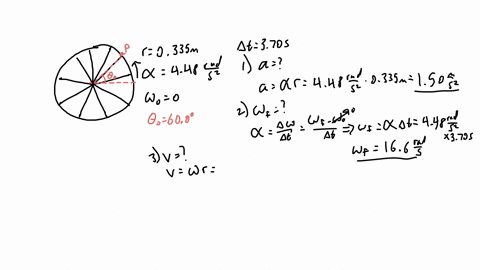 P
θ₀
r = 0.335m
α = 4.48 rad/s²
ω₀ = 0
θ₀ = 60.0°
Δt = 3.70s
1) a = ?
a = αr = 4.48 rad/s² · 0.335m = 1.50 m/s²
2) ωf = ?
α = Δω/Δt = (ωf - ω₀)/Δt ⇒ ωf = αΔt = 4.48 rad/s² × 3.70s
ωf = 16.6 rad/s
3) v = ?
v = ωr =